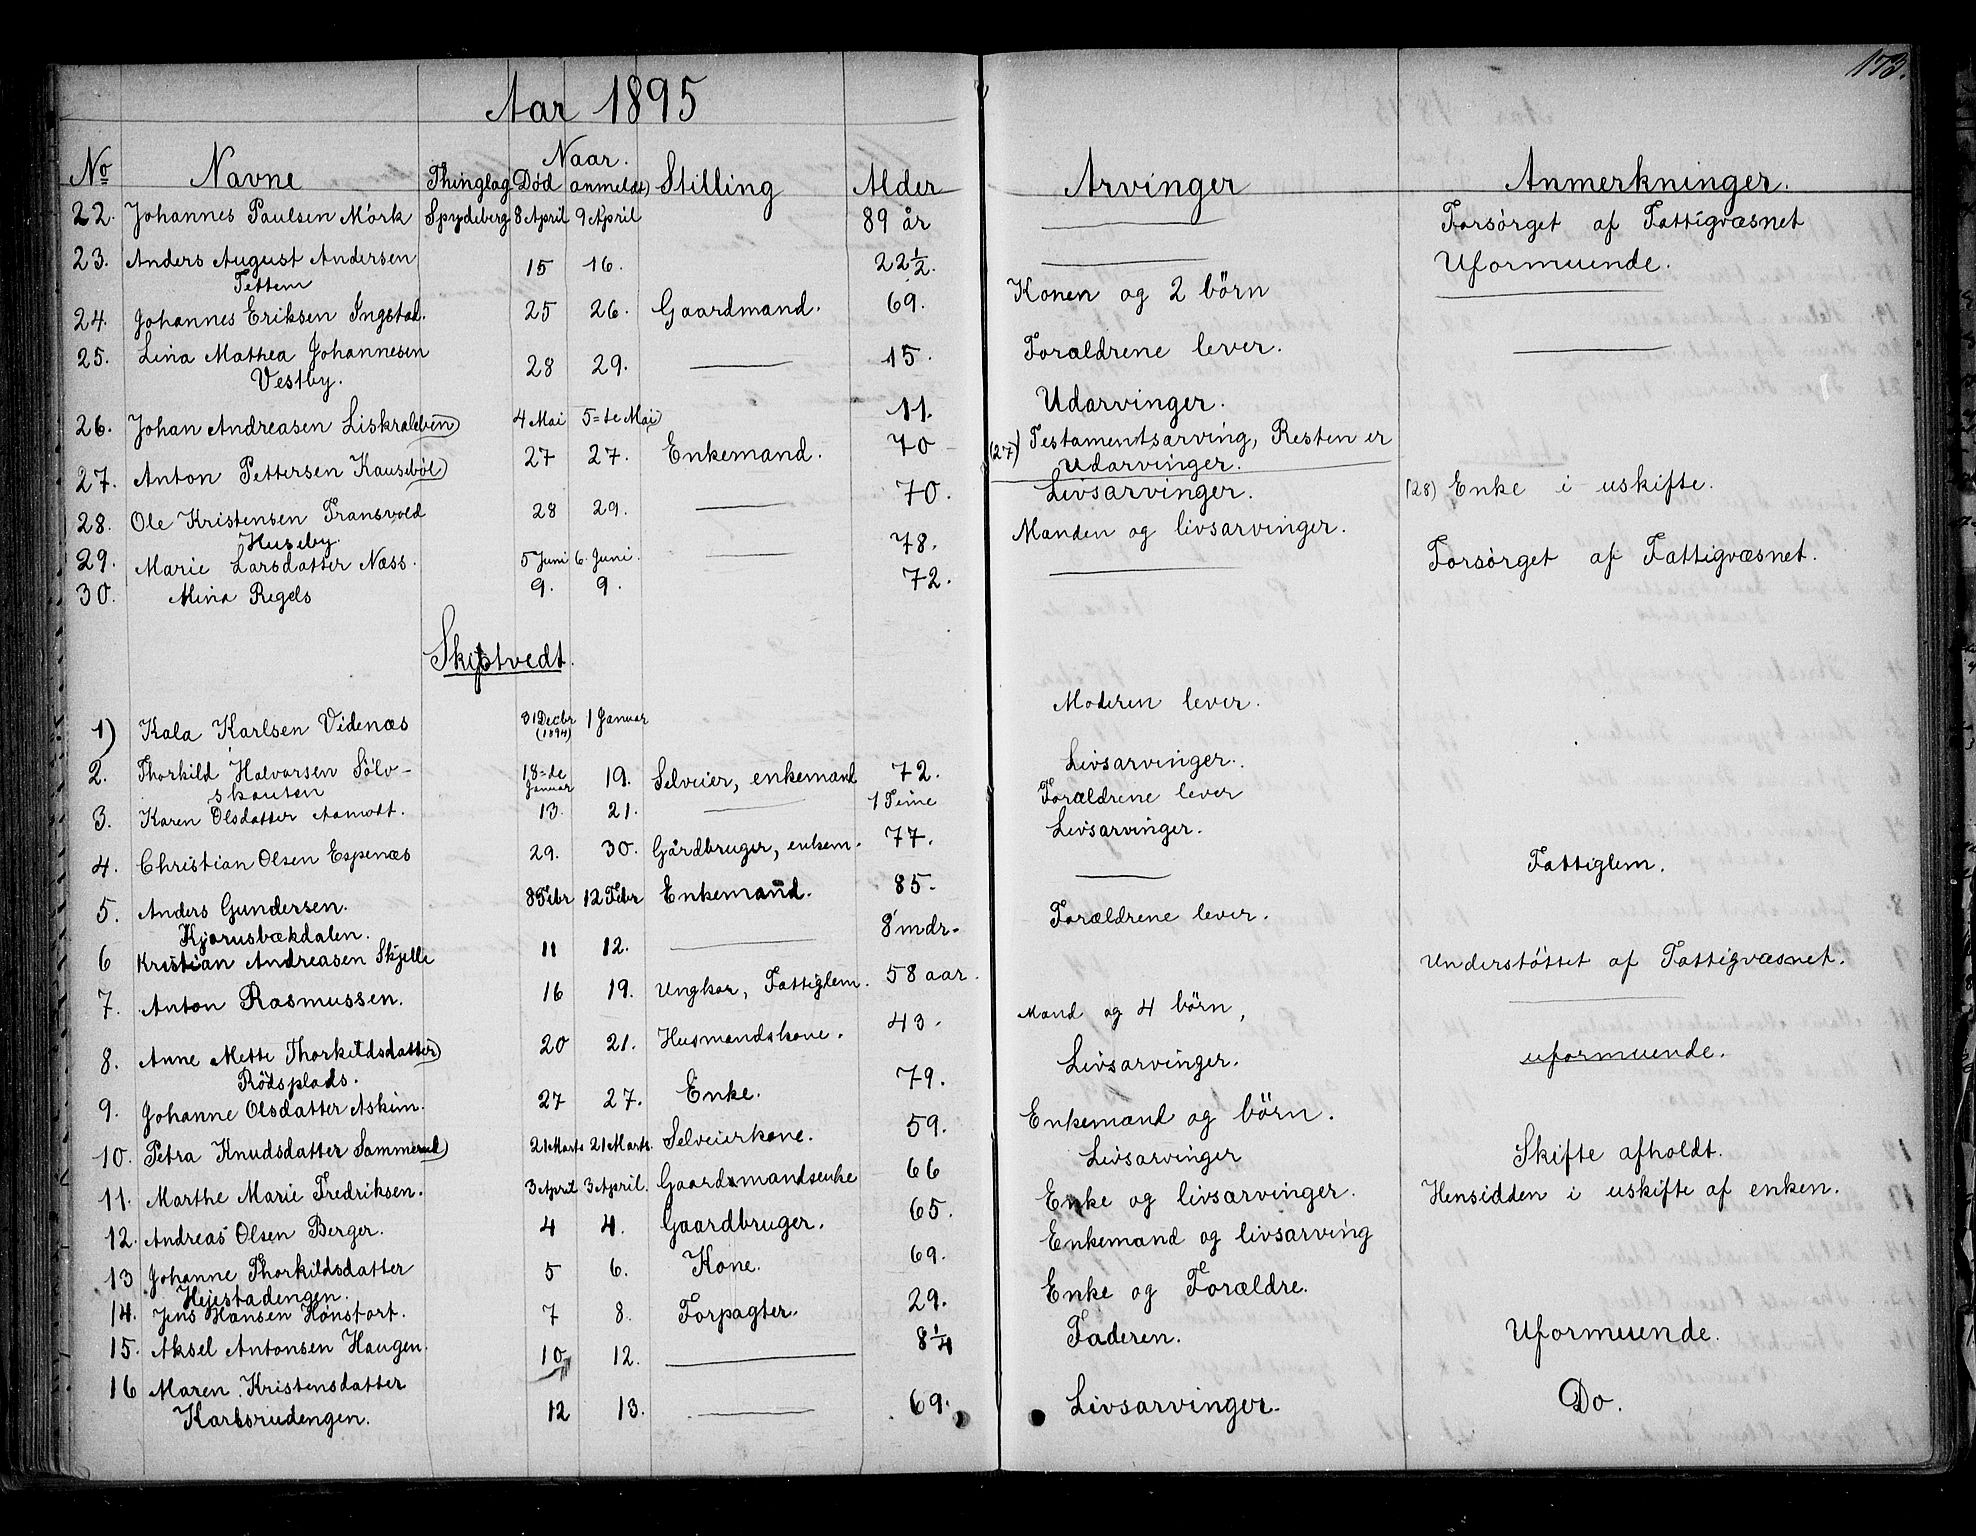 173.
Aar 1895
No Navne Thinglag Naar. Død anmeldt) Stilling Alder Arvinger Anmerkninger.
22. Johannes Paulsen Mörk Spydeberg 8 April 9 April 89 år Forsörget af Fattigvæsnet
23. Anders August Andersen 15 16. 22½. Uformuende.
Tettem
24. Johannes Eriksen Ingstad. 25 26. Gaardmand. 69. Konen og 2 börn
25. Lina Mathea Johannesen 28 29. 15. Forældrene lever.
Vestby.
26. Johan Andreasen Liskraleben) 4 Mai 5=te Mai) 11. Udarvinger.
27. Anton Pettersen Kauseböl) 27 27. Enkemand. 70 (27) Testamentsarving, Resten er
Udarvinger.
28. Ole Kristensen Transvold 28 29. 70. Livsarvinger. (28) Enke i uskifte.
Huseby.
29. Marie Larsdatter Næss. 5 Juni 6. Juni. 78. Manden og livsarvinger.
30. Mina Regels 9. 9. 72. Forsörget af Fattigvæsnet.
Skiptvedt.
1) Kala Karlsen Videnæs 31 Decbr (1894) 1 Januar Moderen lever.
2. Thorkild Halvorsen Sölv- 18=de Januar 19. Selveier, enkemand 72. Livsarvinger.
skauten
3. Karen Olsdatter Aamodt. 13. 21. 1 Time Forældrene lever
4. Christian Olsen Espenæs 29. 30. Gårdbruger, enkem. 77. Livsarvinger.
5. Anders Gundersen. 8 Febr 12 Febr Enkemand. 85. Fattiglem.
Kjørusbækdalen.
6 Kristian Andreasen Skjelle 11 12. 8 mdr. Forældrene lever.
7. Anton Rasmussen. 16 19. Ungkar, Fattiglem. 58 aar. Understöttet af Fattigvæsnet.
8. Anne Mette Thorkildsdatter) 20 21. Husmandskone. 43. Mand og 4 börn,
Rödsplads.
9. Johanne Olsdatter Askim. 27 27. Enke. 79. Livsarvinger. uformuende.
10. Petra Knudsdatter Sommerud) 21 Marts 21 Marts. Selveierkone. 59. Enkemand og börn.
11. Marthe Marie Fredriksen. 3 April 3 April. Gaardsmandsenke 66 Livsarvinger Skifte afholdt.
12. Andreas Olsen Berger. 4 4. Gaardbruger. 65. Enke og livsarvinger. Hensidden i uskifte af enken.
13 Johanne Thorkildsdatter 5 6. Kone. 69. Enkemand og livsarving
Hejestadengen.
14. Jens Hansen Hönstort. 7 8. Forpagter. 29. Enke og Forældre.
15. Aksel Antonsen Haugen. 10 12. 8¼ Faderen. Uformuende.
16 Maren Kristensdatter 12 13. 69. Livsarvinger. Do.
Karlsrudengen.